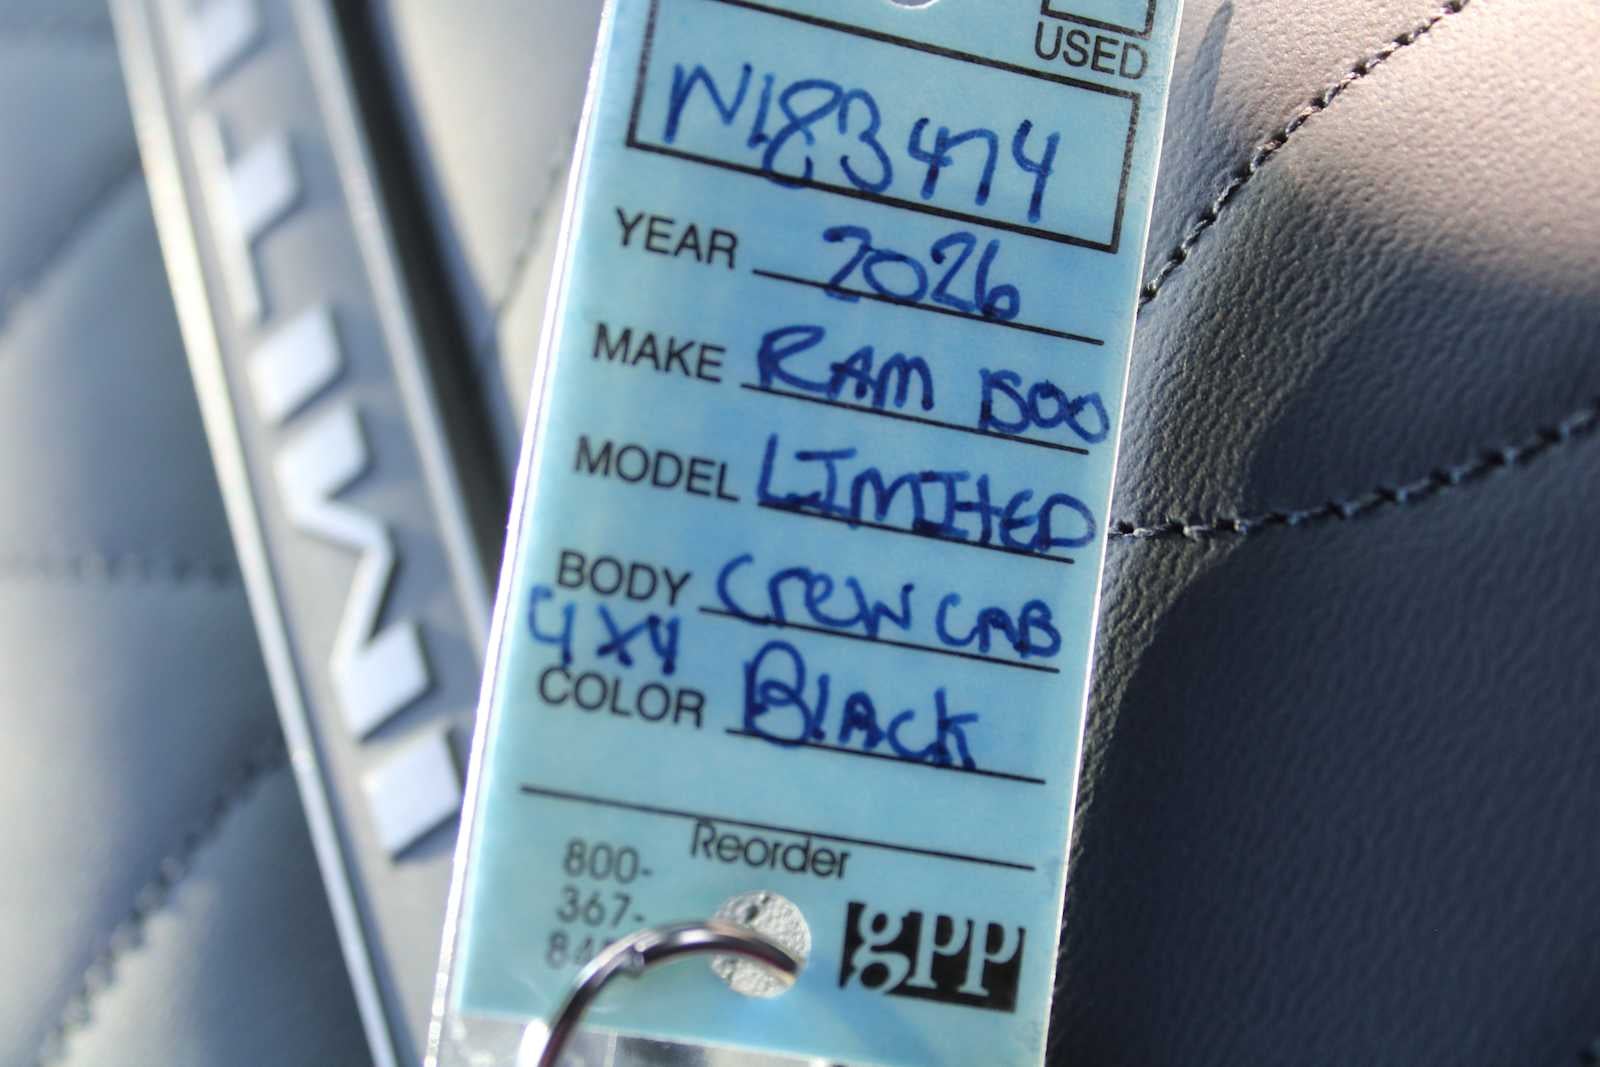 USED
N183474
YEAR 2026
MAKE RAM 1500
MODEL LIMITED
BODY Crew CAB
4X4
COLOR Black
Reorder
800-
367-
gpp